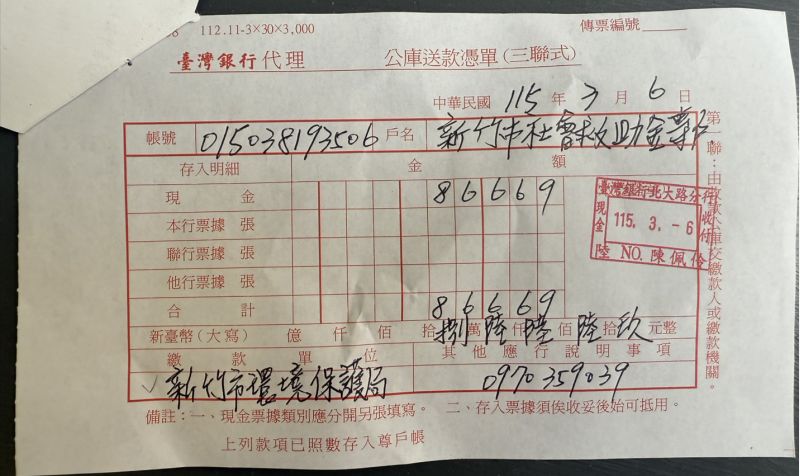 112.11-3×30×3,000
傳票編號
臺灣銀行代理 公庫送款憑單(三聯式)
中華民國 115 年 3 月 6 日
帳號 015038193506 戶名 新竹市社會救助金專戶
存入明細 金額
現金 86669
本行票據 張
聯行票據 張
他行票據 張
合計 86669
臺灣銀行北大路分行
現金 收付
115.3.-6
陸 NO.陳佩伶
新臺幣(大寫) 億 仟 佰 拾 捌 萬 陸 仟 陸 佰 陸 拾 玖 元整
繳款單位 其他應行說明事項
新竹市環境保護局 0970359039
備註:一、現金票據類別應分開另張填寫。 二、存入票據須俟收妥後始可抵用。
上列款項已照數存入尊戶帳
第一聯:由收款公庫交繳款人或繳款機關。